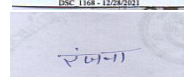 DSC_1168 - 12/28/2021
रंजना